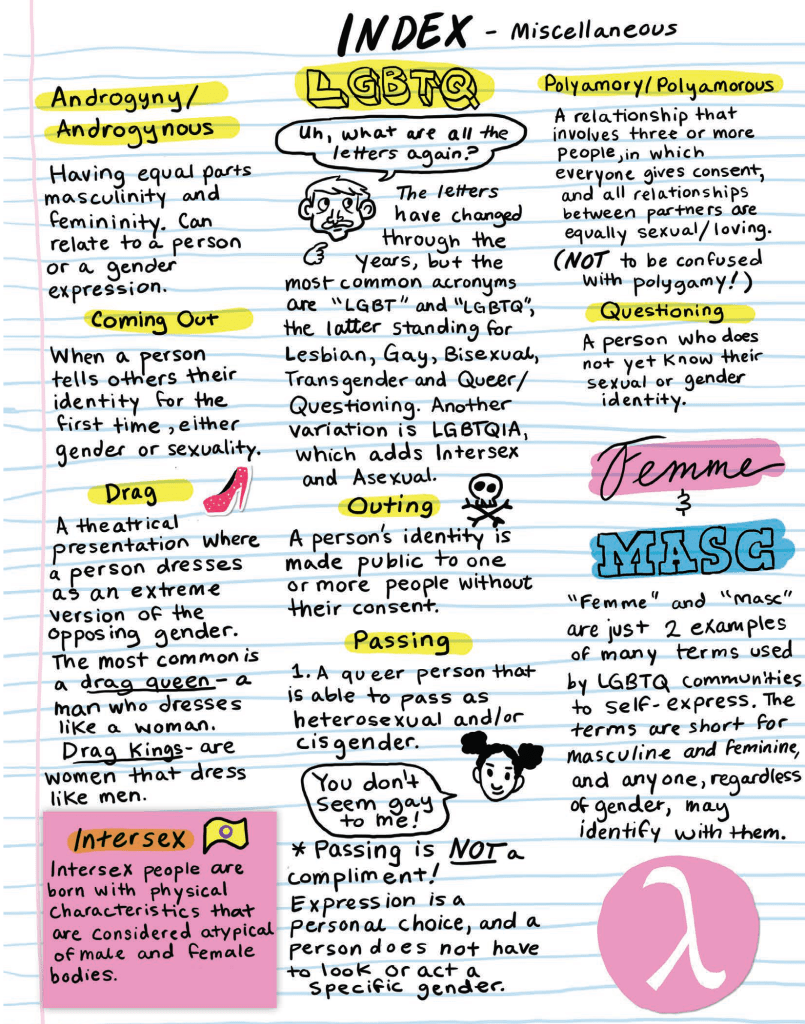 INDEX - Miscellaneous
Androgyny/
Androgynous
Having equal parts
masculinity and
femininity. Can
relate to a person
or a gender
expression.
Coming Out
When a person
tells others their
identity for the
first time, either
gender or sexuality.
Drag
A theatrical
presentation where
a person dresses
as an extreme
version of the
opposing gender.
The most common is
a drag queen - a
man who dresses
like a woman.
Drag Kings - are
women that dress
like men.
Intersex
Intersex people are
born with physical
characteristics that
are considered atypical
of male and female
bodies.
LGBTQ
Uh, what are all the
letters again?
The letters
have changed
through the
years, but the
most common acronyms
are "LGBT" and "LGBTQ",
the latter standing for
Lesbian, Gay, Bisexual,
Transgender and Queer/
Questioning. Another
variation is LGBTQIA,
which adds Intersex
and Asexual.
Outing
A person's identity is
made public to one
or more people without
their consent.
Passing
1. A queer person that
is able to pass as
heterosexual and/or
cisgender.
You don't
seem gay
to me!
* Passing is NOT a
compliment!
Expression is a
personal choice, and a
person does not have
to look or act a
specific gender.
Polyamory/Polyamorous
A relationship that
involves three or more
people, in which
everyone gives consent,
and all relationships
between partners are
equally sexual/loving.
(NOT to be confused
with polygamy!)
Questioning
A person who does
not yet know their
sexual or gender
identity.
Femme
&
MASC
"Femme" and "Masc"
are just 2 examples
of many terms used
by LGBTQ communities
to self-express. The
terms are short for
masculine and feminine,
and anyone, regardless
of gender, may
identify with them.
λ